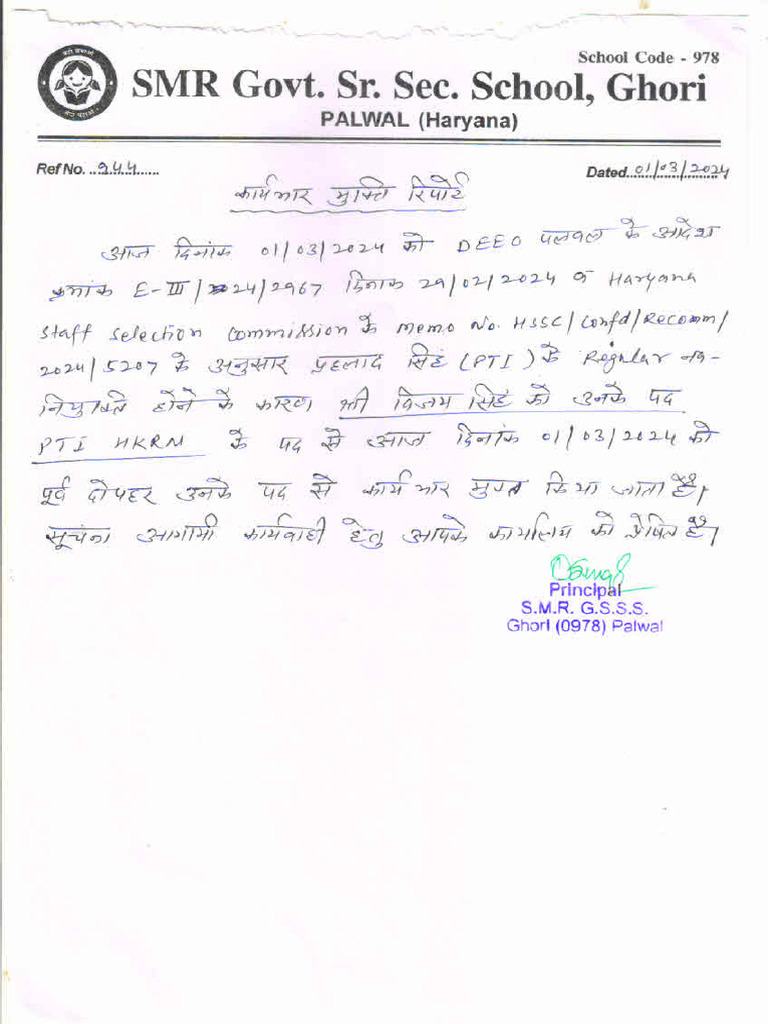 School Code - 978
SMR Govt. Sr. Sec. School, Ghori
PALWAL (Haryana)
Ref No. 944
Dated 01/03/2024
कार्यभार मुक्ति रिपोर्ट
आज दिनांक 01/03/2024 को DEEO पलवल के आदेश
क्रमांक E-III/2024/2967 दिनांक 29/02/2024 व Haryana
Staff Selection Commission के Memo No. HSSC/Confd/Recomm/
2024/5207 के अनुसार प्रहलाद सिंह (PTI) के Regular नव-
नियुक्ति होने के कारण श्री विजय सिंह को उनके पद
PTI HKRM के पद से आज दिनांक 01/03/2024 को
पूर्व दोपहर उनके पद से कार्यभार मुक्त किया जाता है।
सूचना आगामी कार्यवाही हेतु आपके कार्यालय को प्रेषित है।
Principal
S.M.R. G.S.S.S.
Ghori (0978) Palwal